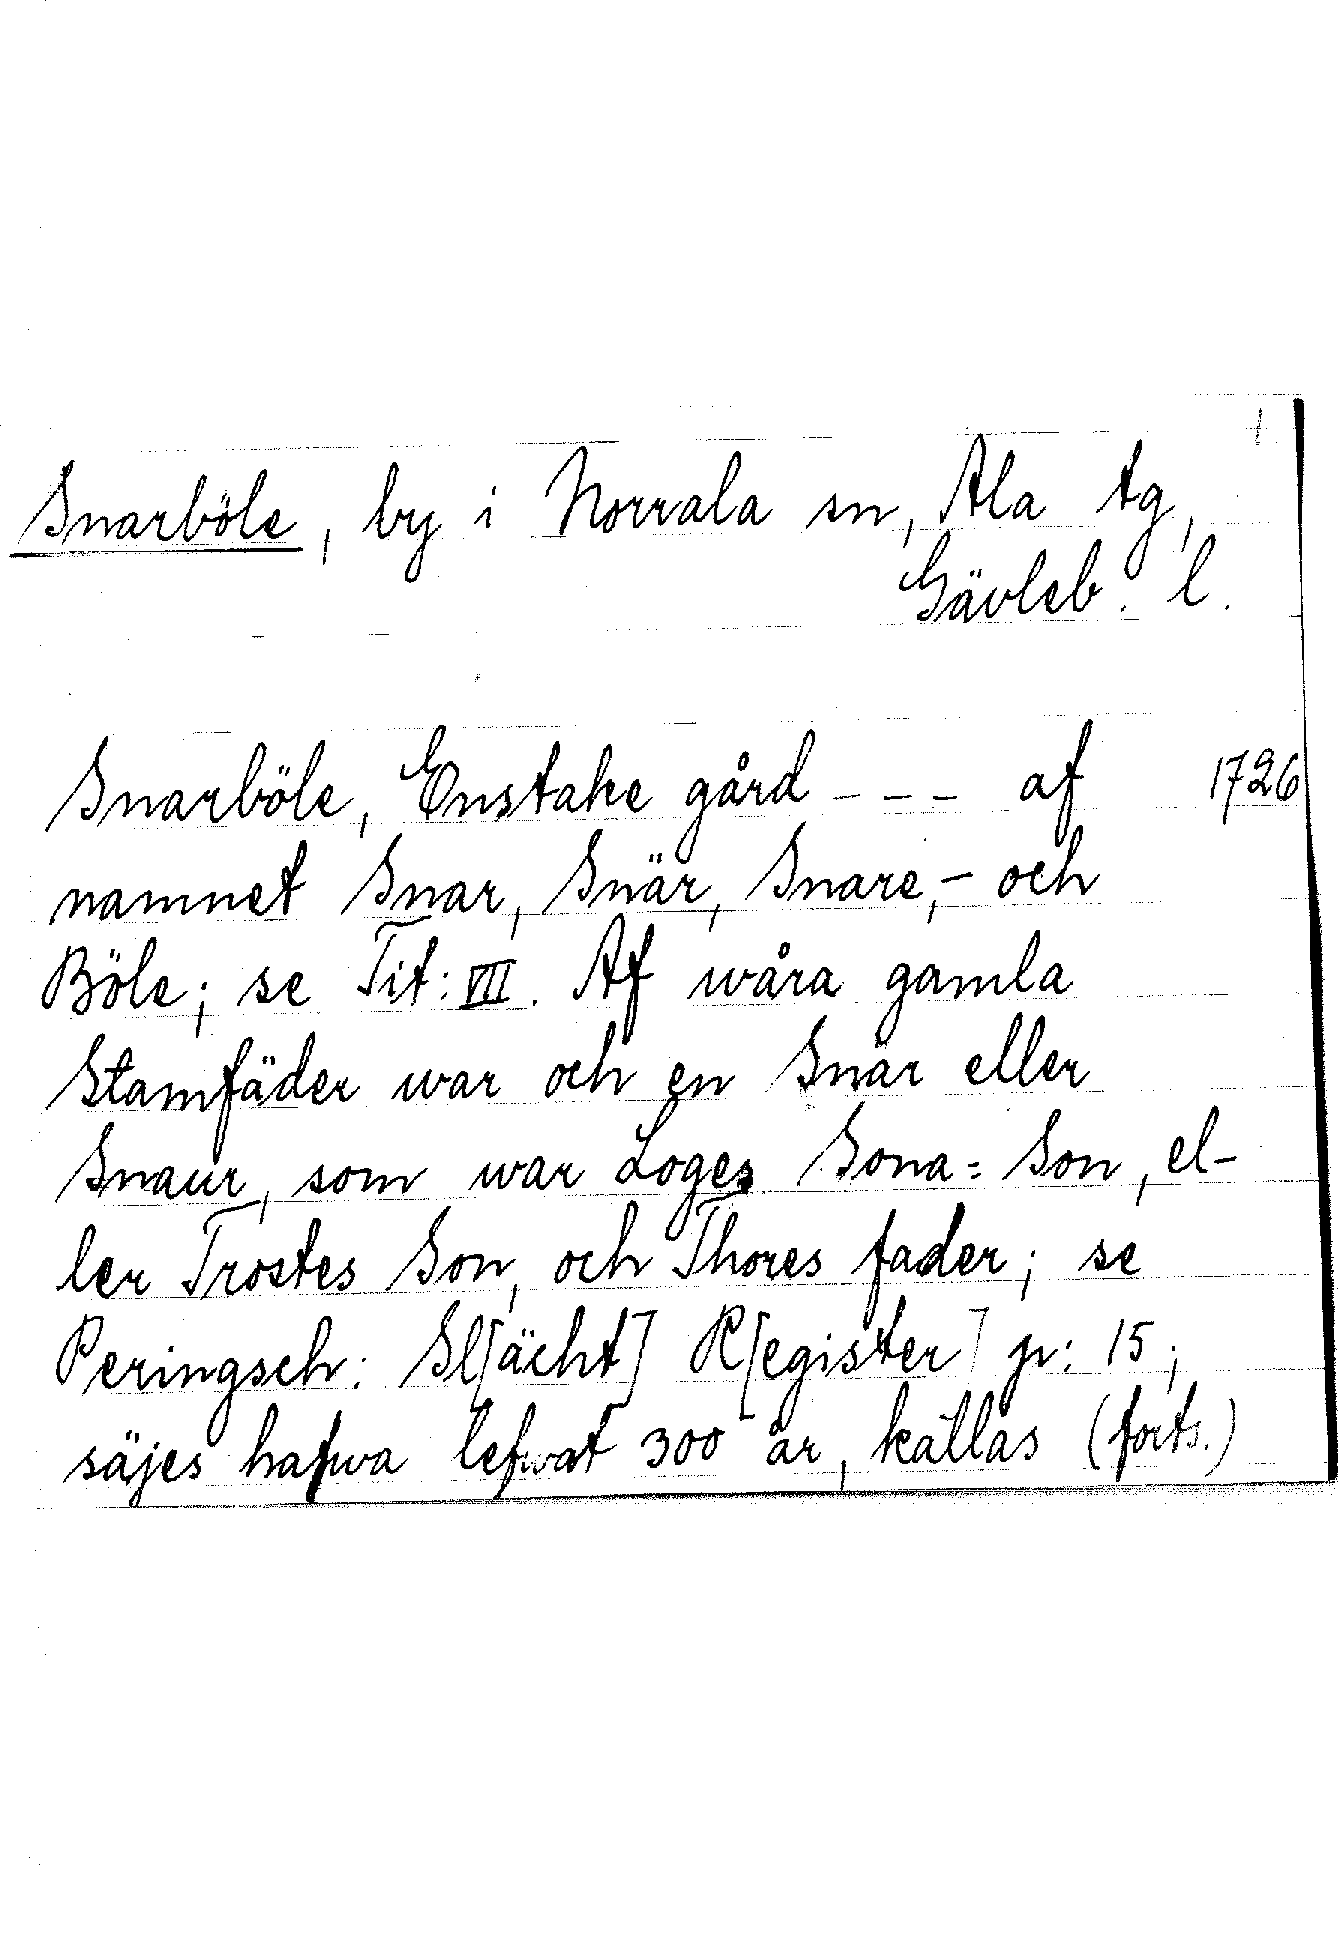 1
Snarböle, by i Norrala sn, Ala tg,
Gävleb. l.
Snarböle, Enstake gård - - - af 1726
namnet Snar, Snär, Snare, - och
Böle; se Tit: VII. Af wåra gamla
Stamfäder war och en Snär eller
Snaur, som war Loges Sona= Son, el-
ler Trostes Son, och Thores fader; se
Peringsch: Sl[ächt] R[egister] p: 15;
säjes hafwa lefwat 300 år, kallas (forts.)